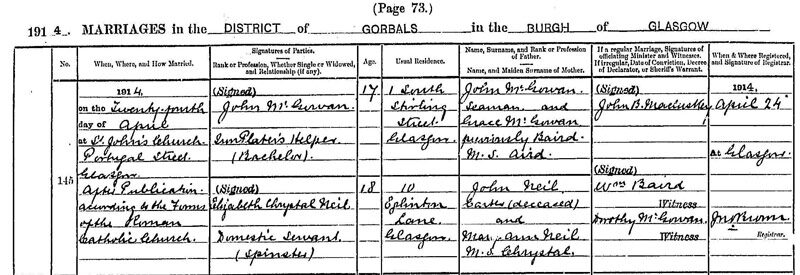 (Page 73.)
1914. MARRIAGES in the DISTRICT of GORBALS in the BURGH of GLASGOW
No.
When, Where, and How Married.
Signatures of Parties.
Rank or Profession, Whether Single or Widowed, and Relationship (if any).
Age.
Usual Residence.
Name, Surname, and Rank or Profession of Father.
Name, and Maiden Surname of Mother.
If a regular Marriage, Signatures of officiating Minister and Witnesses.
If irregular, Date of Conviction, Decree of Declarator, or Sheriff's Warrant.
When & Where Registered, and Signature of Registrar.
145
1914,
on the Twenty-fourth
day of April
at St. John's Church
Portugal Street
Glasgow
After Publication
according to the Forms
of the Roman
Catholic Church.
(Signed)
John McGowan.
Helper
(Bachelor)
(Signed)
Elizabeth Chrystal Neil
Domestic Servant
(Spinster)
17
18
1 South
Stirling
Street
Glasgow
10
Eglinton
Lane
Glasgow
John McGowan.
Seaman and
Grace McGowan
previously Baird
M.S. Aird.
John Neil
Carter (deceased)
and
Mary Ann Neil
M.S. Chrystal.
(Signed)
John B. MacLuskey
(Signed)
Wm Baird
Witness
Dorothy McGowan.
Witness
1914.
April 24th
at Glasgow
Jno Brown
Registrar.